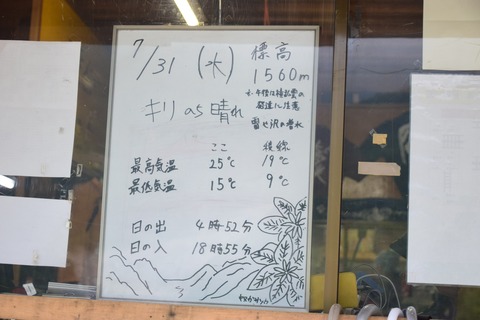 7/31 (水) 標高
1560m
キリ のち 晴れ
※ 午後は積乱雲の
発達に注意
雷や沢の増水
ここ 稜線
最高気温 25℃ 19℃
最低気温 15℃ 9℃
日の出 4時52分
日の入 18時55分